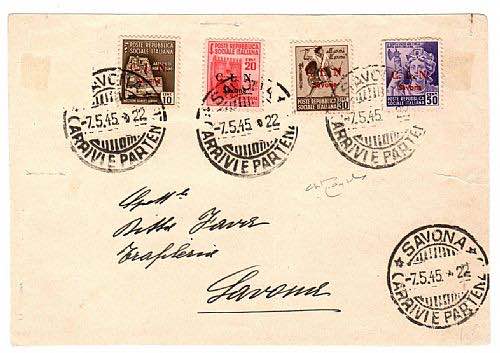 POSTE REPUBBLICA
SOCIALE ITALIANA
10
POSTE REPUBBLICA
SOCIALE ITALIANA
20
C L N
Savona
C. L. N.
Savona
POSTE REPUBBLICA
SOCIALE ITALIANA
30
POSTE REPUBBLICA
SOCIALE ITALIANA
C. L. N.
Savona
50
SAVONA
-7.5.45. 22
ARRIVI E PARTENZ
SAVONA
-7.5.45 22
ARRIVI E PARTENZ
-7.5.45 22
ARRIVI E PARTENZ
Spett.le
Ditta
Savona
SAVONA
-7.5.45. * 22
ARRIVI E PARTENZ